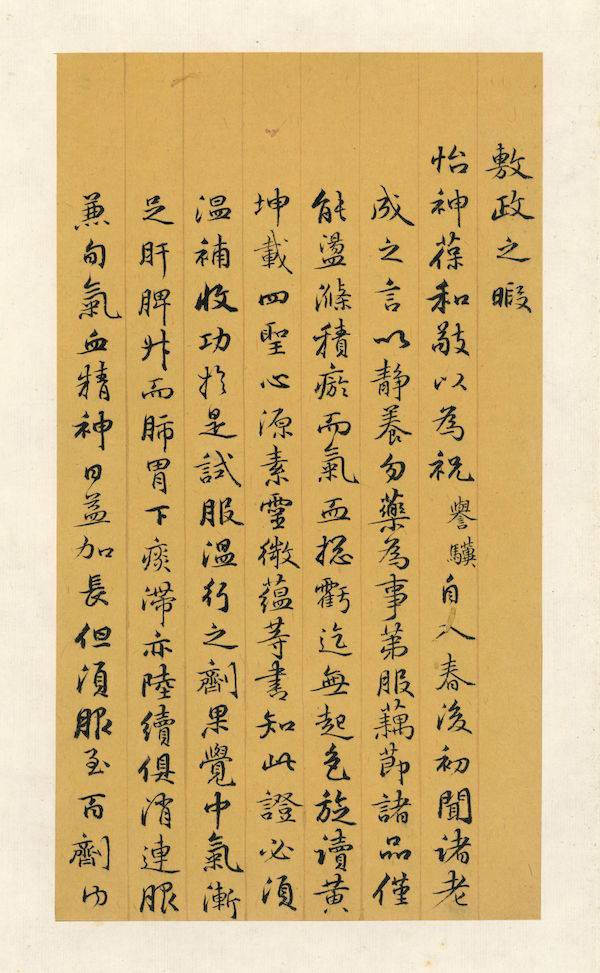 敷政之暇
怡神葆和敬以為祝譽驥自入春後初聞諸老
成之言以靜養勿藥為事第服藕節諸品僅
能盪滌積瘀而氣血摠虧迄無起色旋讀黃
坤載四聖心源素靈微蘊等書知此證必須
溫補收功於是試服溫行之劑果覺中氣漸
足肝脾升而肺胃下痰滯亦陸續俱消連服
兼旬氣血精神日益加長但須服至百劑內